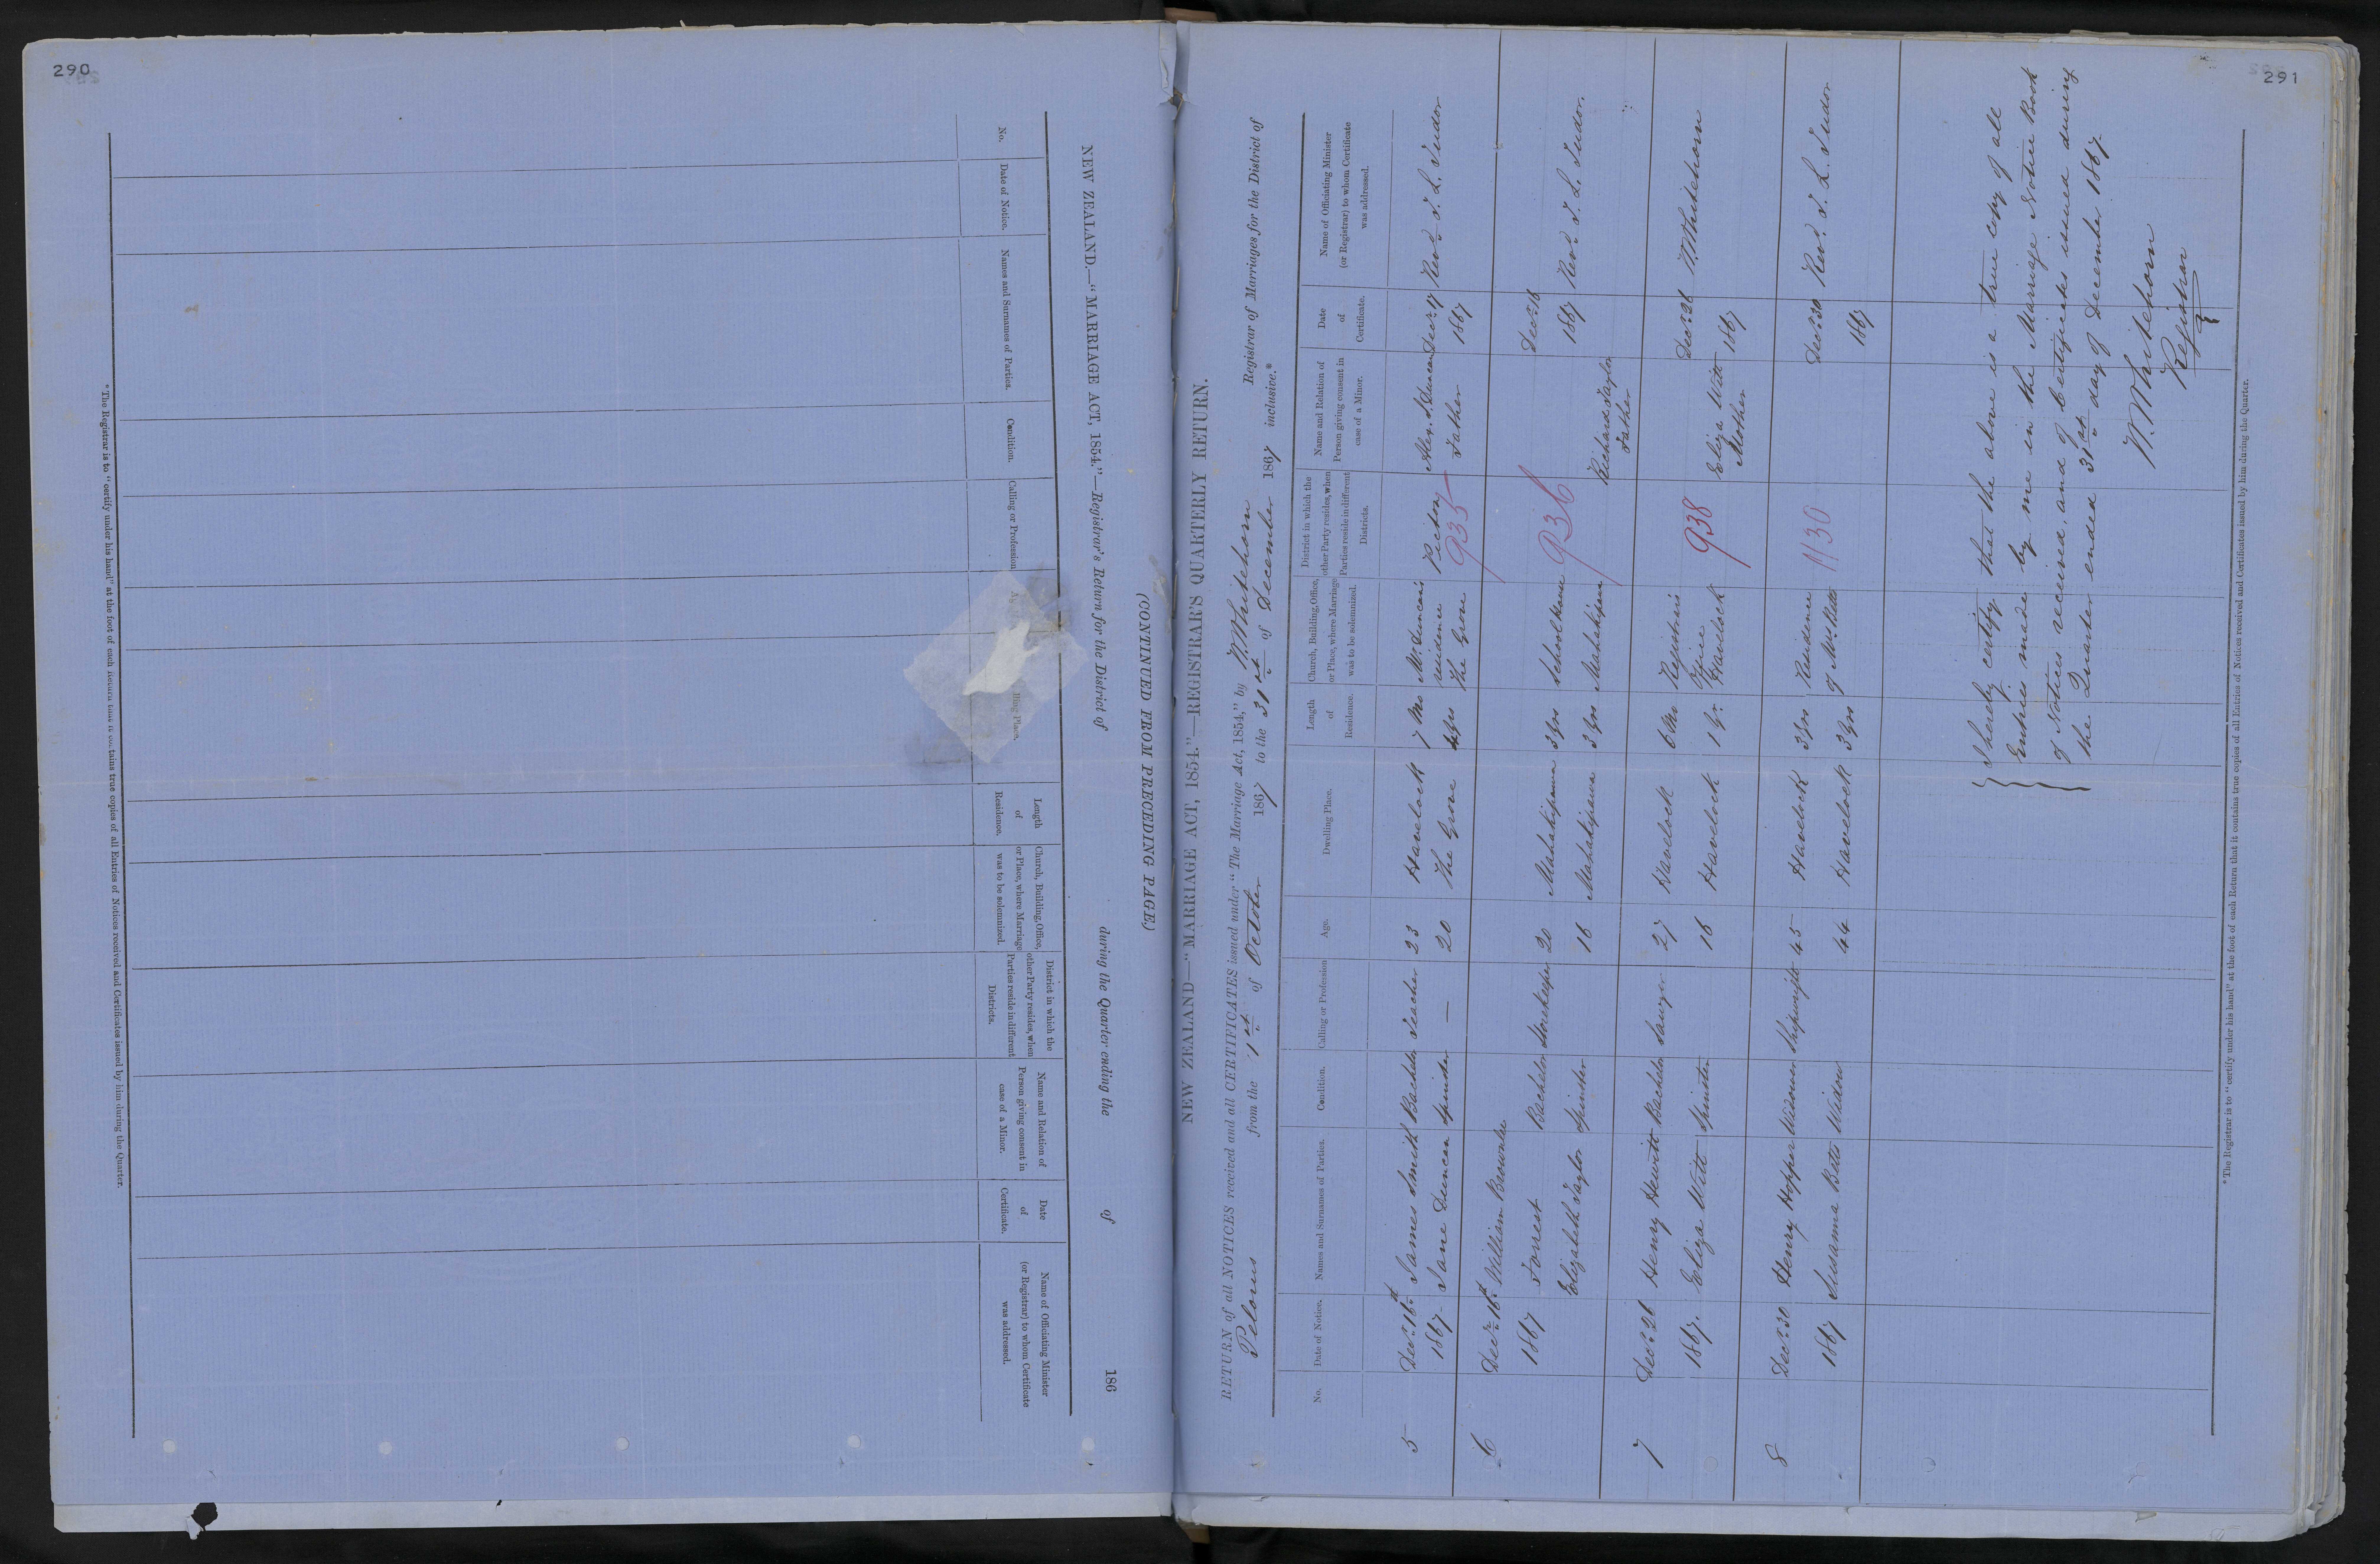 290
NEW ZEALAND.—"MARRIAGE ACT, 1854."—Registrar's Return for the District of during the Quarter ending the of 186
(CONTINUED FROM PRECEDING PAGE.)
No.
Date of Notice.
Names and Surnames of Parties.
Condition.
Calling or Profession
Length
of
Residence.
Church, Building, Office,
or Place, where Marriage
was to be solemnized.
District in which the
other Party resides, when
Parties reside in different
Districts.
Name and Relation of
Person giving consent in
case of a Minor.
Date
of
Certificate.
Name of Officiating Minister
(or Registrar) to whom Certificate
was addressed.
*The Registrar is to "certify under his hand" at the foot of each Return that it contains true copies of all Entries of Notices received and Certificates issued by him during the Quarter.
291
NEW ZEALAND—"MARRIAGE ACT, 1854."—REGISTRAR'S QUARTERLY RETURN.
RETURN of all NOTICES received and all CERTIFICATES issued under "The Marriage Act, 1854," by W. Whitehorn Registrar of Marriages for the District of
Pelorus from the 1st of October 1867 to the 31st of December 1867 inclusive.*
No.
Date of Notice.
Names and Surnames of Parties.
Condition.
Calling or Profession
Age.
Dwelling Place.
Length
of
Residence.
Church, Building, Office,
or Place, where Marriage
was to be solemnized.
District in which the
other Party resides, when
Parties reside in different
Districts.
Name and Relation of
Person giving consent in
case of a Minor.
Date
of
Certificate.
Name of Officiating Minister
(or Registrar) to whom Certificate
was addressed.
5 Decr. 16th James Smith Bachelor Teacher 23 Havelock 7 Mos Mr. Duncan's Picton Alex. J. Duncan Decr. 17 Revd. T. L. Tudor
1867 Jane Duncan Spinster — 20 The Grove yrs residence
The Grove 935 Father 1867
6 Decr. 16th William Brownlee
1867 Forrest Bachelor Storekeeper 20 Mahakipawa 3 yrs Schoolhouse 936 Decr. 18
1867 Revd. T. L. Tudor.
Elizabeth Taylor Spinster 16 Mahakipawa 3 yrs Mahakipawa Richard Taylor
Father
7 Decr. 26 Henry Hewitt Bachelor Sawyer 27 Havelock 6 Mos Registrar's 938 Decr. 26 W. Whitehorn
1867. Eliza Witt Spinster 16 Havelock 1 yr. Office
Havelock Eliza Witt
Mother 1867
8 Decr. 30 Henry Hopper Widower Shipwright 45 Havelock 3 yrs Residence 1130 Decr. 30 Revd. T. L. Tudor
1867 Susanna Betts Widow 44 Havelock 3 yrs of Mrs. Betts 1867
I hereby certify that the above is a true copy of all
Entries made by me in the Marriage Notice Book
of Notices received, and of Certificates issued during
the Quarter ended 31st day of December 1867.
W. Whitehorn
Registrar
*The Registrar is to "certify under his hand" at the foot of each Return that it contains true copies of all Entries of Notices received and Certificates issued by him during the Quarter.